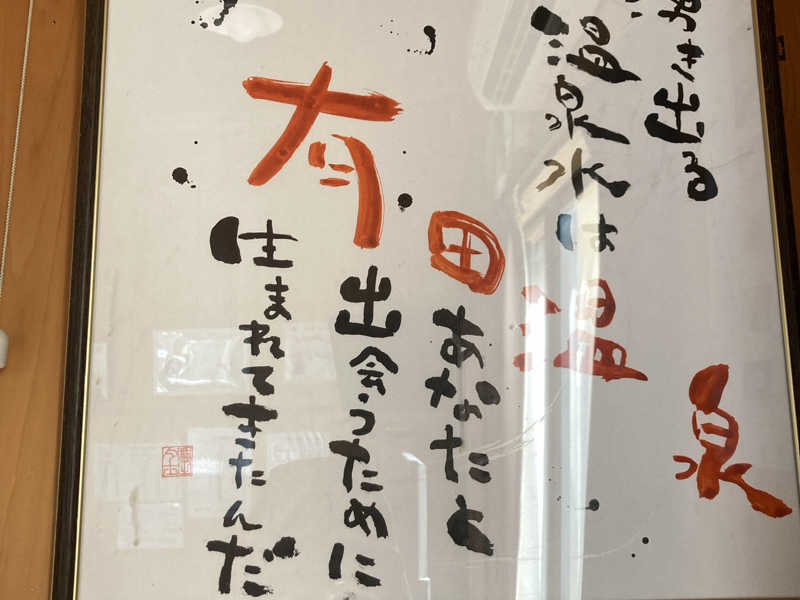 き出る
温泉水は
あなたと
出会うために
生まれてきたんだ
有田温泉